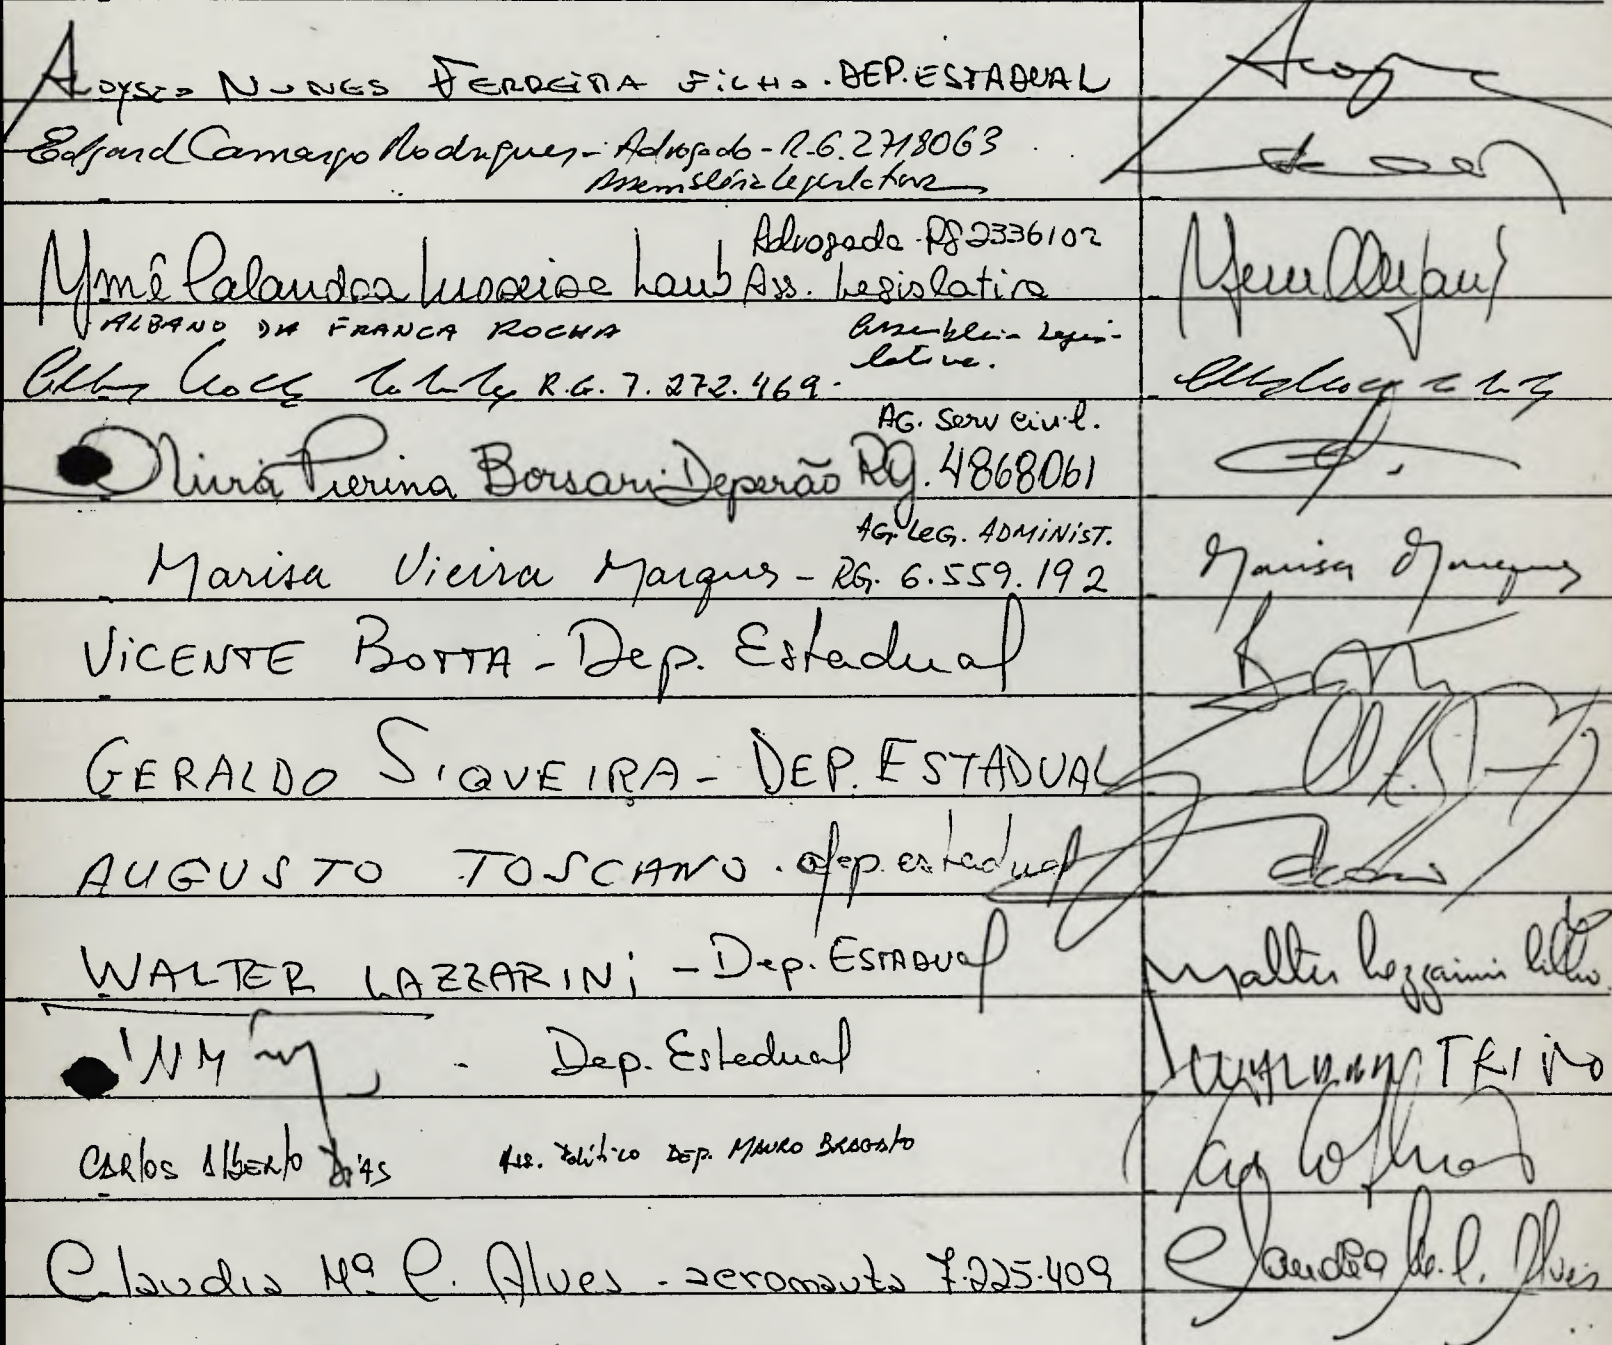 Aloysio Nunes Ferreira Filho. DEP. ESTADUAL
Edgard Camargo Rodrigues - Advogado - R.G. 2718063
Assembléia Legislativa
Advogada - RG 2336102
Ymê Ass. Legislativa
ALBANO DA FRANCA ROCHA Assembleia Legis-
lativa.
R.G. 7.272.469 -
AG. Serv civil.
Pierina Borsari Deperão RG. 4868061
AG. LEG. ADMINIST.
Marisa Vieira Marques - RG. 6.559.192 Marisa Marques
VICENTE BOTTA - Dep. Estadual
GERALDO SIQUEIRA - DEP. ESTADUAL
AUGUSTO TOSCANO. dep. estadual
WALTER LAZZARINI - Dep. ESTADUAL Walter Lazzarini Filho
- Dep. Estadual
CARlos AlbERto DiAS Ass. Político DEP. MAURO BRAGAto
Claudia Mª C. Alves - aeronauta 7.225.409 Claudia M. C. Alves